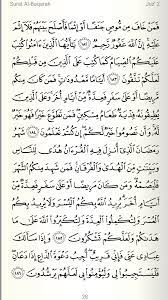 Surat Al-Baqarah Juz' 2
فَمَنْ خَافَ مِن مُّوصٍ جَنَفًا أَوْ إِثْمًا فَأَصْلَحَ بَيْنَهُمْ فَلَآ إِثْمَ
عَلَيْهِ إِنَّ ٱللَّهَ غَفُورٌ رَّحِيمٌ ١٨٢ يَٰٓأَيُّهَا ٱلَّذِينَ ءَامَنُوا۟ كُتِبَ
عَلَيْكُمُ ٱلصِّيَامُ كَمَا كُتِبَ عَلَى ٱلَّذِينَ مِن قَبْلِكُمْ
لَعَلَّكُمْ تَتَّقُونَ ١٨٣ أَيَّامًا مَّعْدُودَٰتٍ فَمَن كَانَ مِنكُم
مَّرِيضًا أَوْ عَلَىٰ سَفَرٍ فَعِدَّةٌ مِّنْ أَيَّامٍ أُخَرَ وَعَلَى ٱلَّذِينَ
يُطِيقُونَهُۥ فِدْيَةٌ طَعَامُ مِسْكِينٍ فَمَن تَطَوَّعَ خَيْرًا فَهُوَ خَيْرٌ
لَّهُۥ وَأَن تَصُومُوا۟ خَيْرٌ لَّكُمْ إِن كُنتُمْ تَعْلَمُونَ ١٨٤ شَهْرُ
رَمَضَانَ ٱلَّذِىٓ أُنزِلَ فِيهِ ٱلْقُرْءَانُ هُدًى لِّلنَّاسِ
وَبَيِّنَٰتٍ مِّنَ ٱلْهُدَىٰ وَٱلْفُرْقَانِ فَمَن شَهِدَ مِنكُمُ ٱلشَّهْرَ
فَلْيَصُمْهُ وَمَن كَانَ مَرِيضًا أَوْ عَلَىٰ سَفَرٍ فَعِدَّةٌ مِّنْ
أَيَّامٍ أُخَرَ يُرِيدُ ٱللَّهُ بِكُمُ ٱلْيُسْرَ وَلَا يُرِيدُ بِكُمُ
ٱلْعُسْرَ وَلِتُكْمِلُوا۟ ٱلْعِدَّةَ وَلِتُكَبِّرُوا۟ ٱللَّهَ عَلَىٰ مَا
هَدَىٰكُمْ وَلَعَلَّكُمْ تَشْكُرُونَ ١٨٥ وَإِذَا سَأَلَكَ
عِبَادِى عَنِّى فَإِنِّى قَرِيبٌ أُجِيبُ دَعْوَةَ ٱلدَّاعِ إِذَا دَعَانِ
فَلْيَسْتَجِيبُوا۟ لِى وَلْيُؤْمِنُوا۟ بِى لَعَلَّهُمْ يَرْشُدُونَ ١٨٦
28